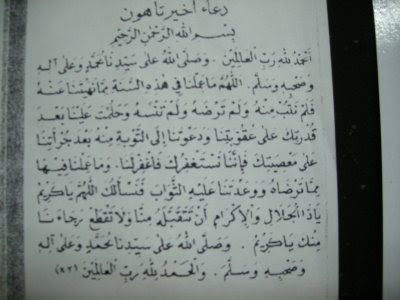 دعاء أخير تاهون
بسم الله الرحمن الرحيم
اَلْحَمْدُ لِلّٰهِ رَبِّ الْعَالَمِيْنَ . وَصَلَّى اللهُ عَلَى سَيِّدِنَا مُحَمَّدٍ وَعَلَى آلِهِ
وَصَحْبِهِ وَسَلَّمَ . اَللّٰهُمَّ مَا عَمِلْنَا فِي هٰذِهِ السَّنَةِ مِمَّا نَهَيْتَنَا عَنْهُ
فَلَمْ نَتُبْ مِنْهُ وَلَمْ تَرْضَهُ وَلَمْ تَنْسَهُ وَحَلُمْتَ عَلَيْنَا بَعْدَ
قُدْرَتِكَ عَلَى عُقُوْبَتِنَا وَدَعَوْتَنَا إِلَى التَّوْبَةِ مِنْهُ بَعْدَ جُرْأَتِنَا
عَلَى مَعْصِيَتِكَ فَإِنَّا نَسْتَغْفِرُكَ فَاغْفِرْلَنَا . وَمَا عَمِلْنَا فِيْهَا
مِمَّا تَرْضَاهُ وَوَعَدْتَنَا عَلَيْهِ الثَّوَابَ فَنَسْأَلُكَ اللّٰهُمَّ يَا كَرِيْمُ
يَا ذَا الْجَلَالِ وَالْإِكْرَامِ أَنْ تَتَقَبَّلَهُ مِنَّا وَلَا تَقْطَعْ رَجَاءَنَا
مِنْكَ يَا كَرِيْمُ . وَصَلَّى اللهُ عَلَى سَيِّدِنَا مُحَمَّدٍ وَعَلَى آلِهِ
وَصَحْبِهِ وَسَلَّمَ . وَالْحَمْدُ لِلّٰهِ رَبِّ الْعَالَمِيْنَ (×٣)